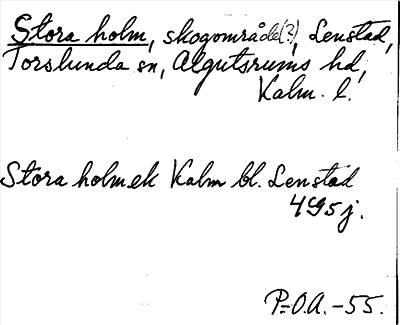 Stora holm, skogområde(?), Lenstad,
Torslunda sn, Algutsrums hd,
Kalm. l.
Stora holm ek Kalm bl. Lenstad
4 G5 j.
P.-O.A. -55.